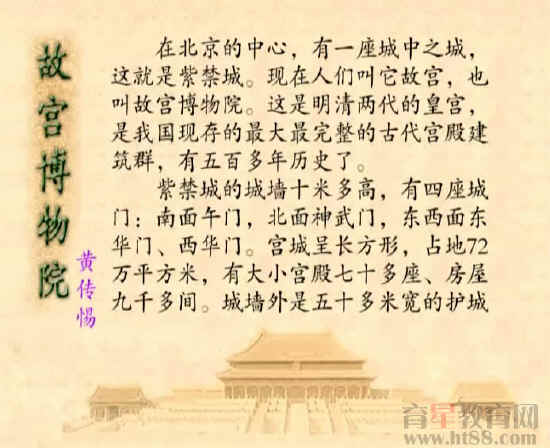 故宫博物院
黄传惕
在北京的中心，有一座城中之城，
这就是紫禁城。现在人们叫它故宫，也
叫故宫博物院。这是明清两代的皇宫，
是我国现存的最大最完整的古代宫殿建
筑群，有五百多年历史了。
紫禁城的城墙十米多高，有四座城
门：南面午门，北面神武门，东西面东
华门、西华门。宫城呈长方形，占地72
万平方米，有大小宫殿七十多座、房屋
九千多间。城墙外是五十多米宽的护城
育星教育网
www.ht88.com